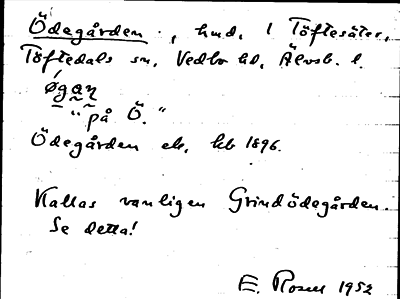 Ödegården, hmd. i Töftesäter,
Töftedals sn, Vedbo hd, Älvsb. l.
øgan
"på Ö."
Ödegården eb, kb 1896.
Kallas vanligen Grindödegården.
Se detta!
E. Rosell 1952